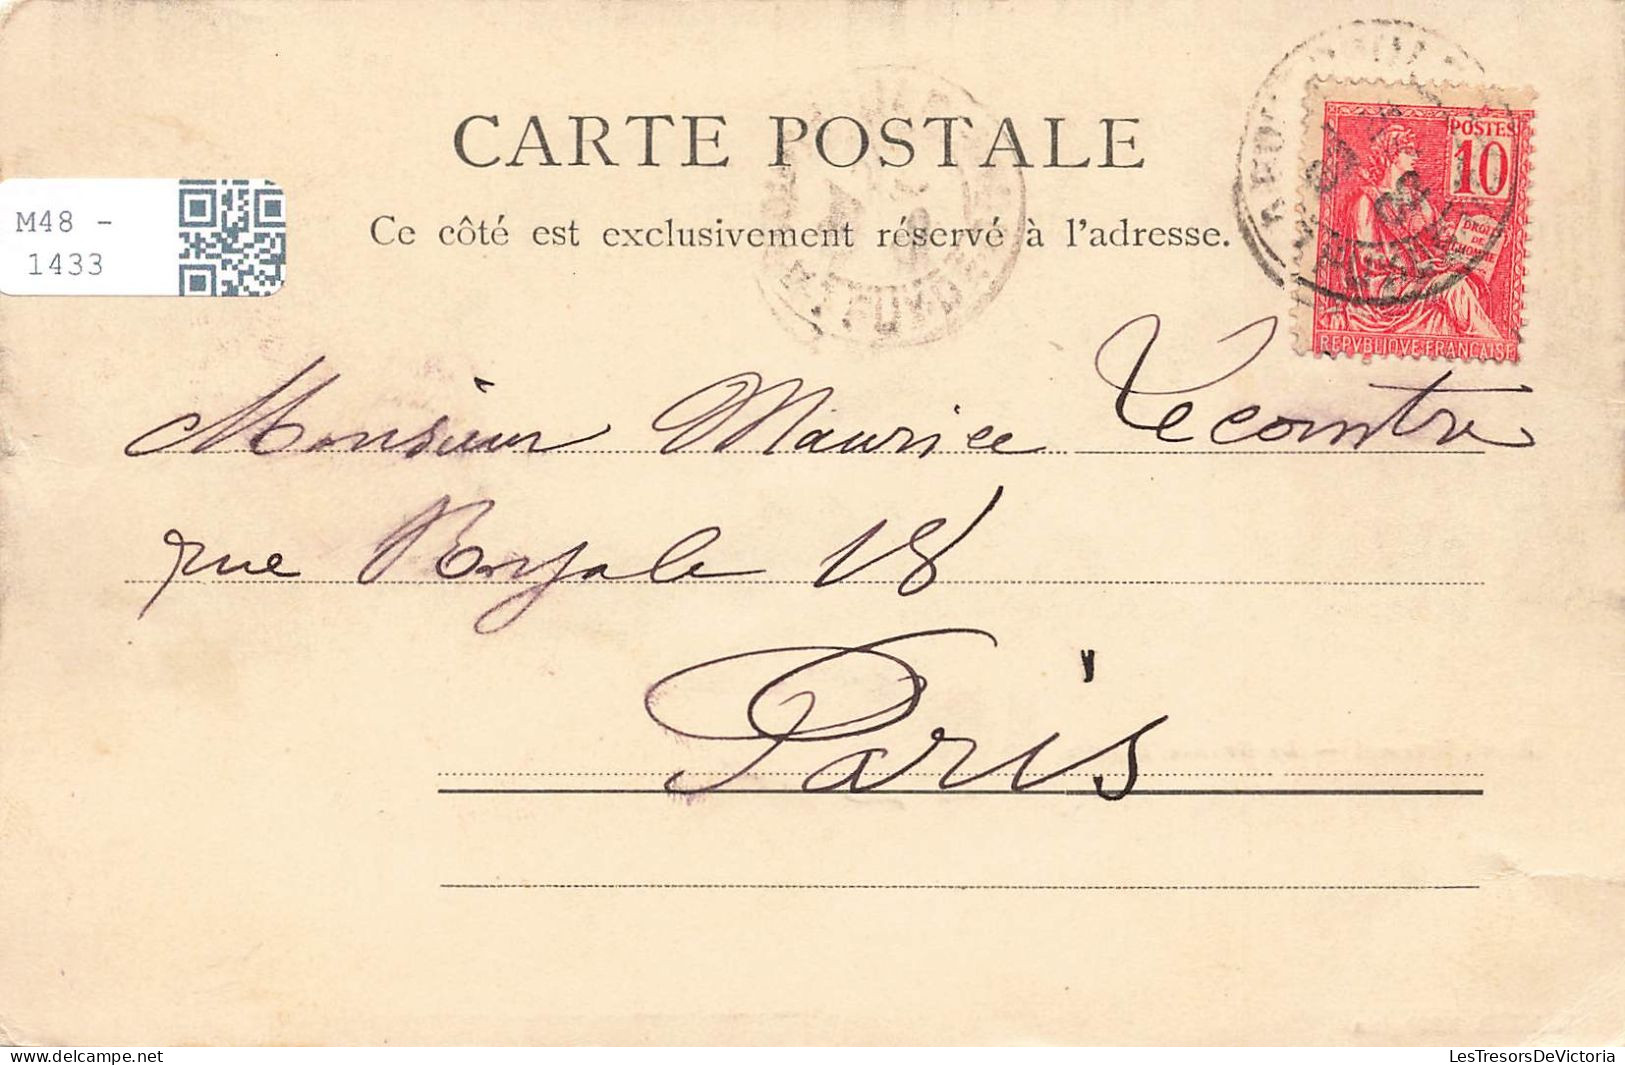 CARTE POSTALE
Ce côté est exclusivement réservé à l'adresse.
M48 -
1433
POSTES
10
DROITS
DE
L'HOMME
REPVBLIQVE FRANCAISE
Monsieur Maurice Lecomtre
rue Royale 18
Paris
delcampe.net
LesTresorsDeVictoria